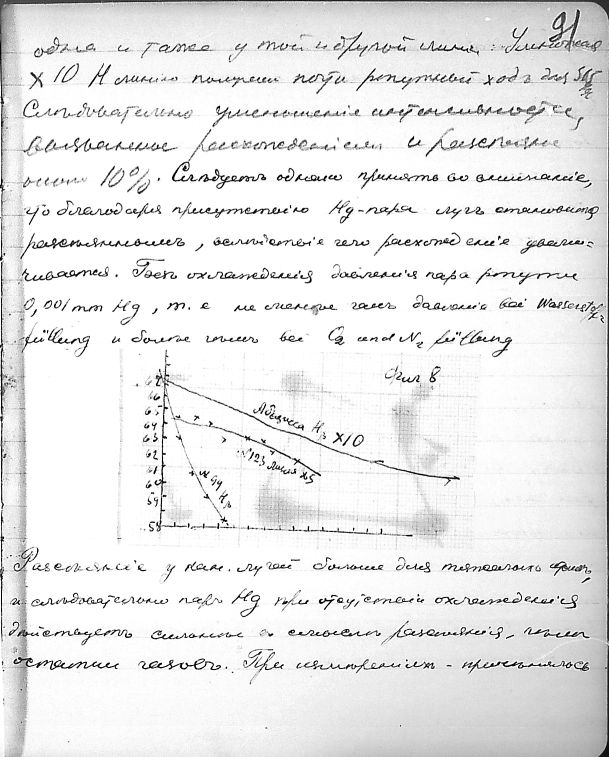 91
одна и таже у той и другой линии. Умножая
×10 H линию получаем почти ртутный ходъ для
Слѣдовательно уменьшеніе интенсивности,
вызванное расхожденіемъ и разсѣяніе
около 10%. Слѣдуетъ однако принять во вниманіе,
что благодаря присутствію Hg-пара лучъ становится
разсѣяннымъ, вслѣдствіе чего расхожденіе увели-
чивается. Безъ охлажденія давленія пара ртути
0,001 mm Hg, т.е. не меньше чѣмъ давленіе bei Wasserstoff-
füllung и больше чѣмъ bei O₂ und N₂ füllung
Фиг 8
Абсцисса H₂ ×10
N 123 линия ×5
N 94 H₂
66
65
64
63
62
61
60
59
58
Разсѣяніе у кан. лучей больше для тяжелыхъ
и слѣдовательно паръ Hg при отсутствіи охлажденія
дѣйствуетъ сильнѣе въ смыслѣ разсѣянія, чѣмъ
остатки газовъ. При измѣреніяхъ - примѣнялось